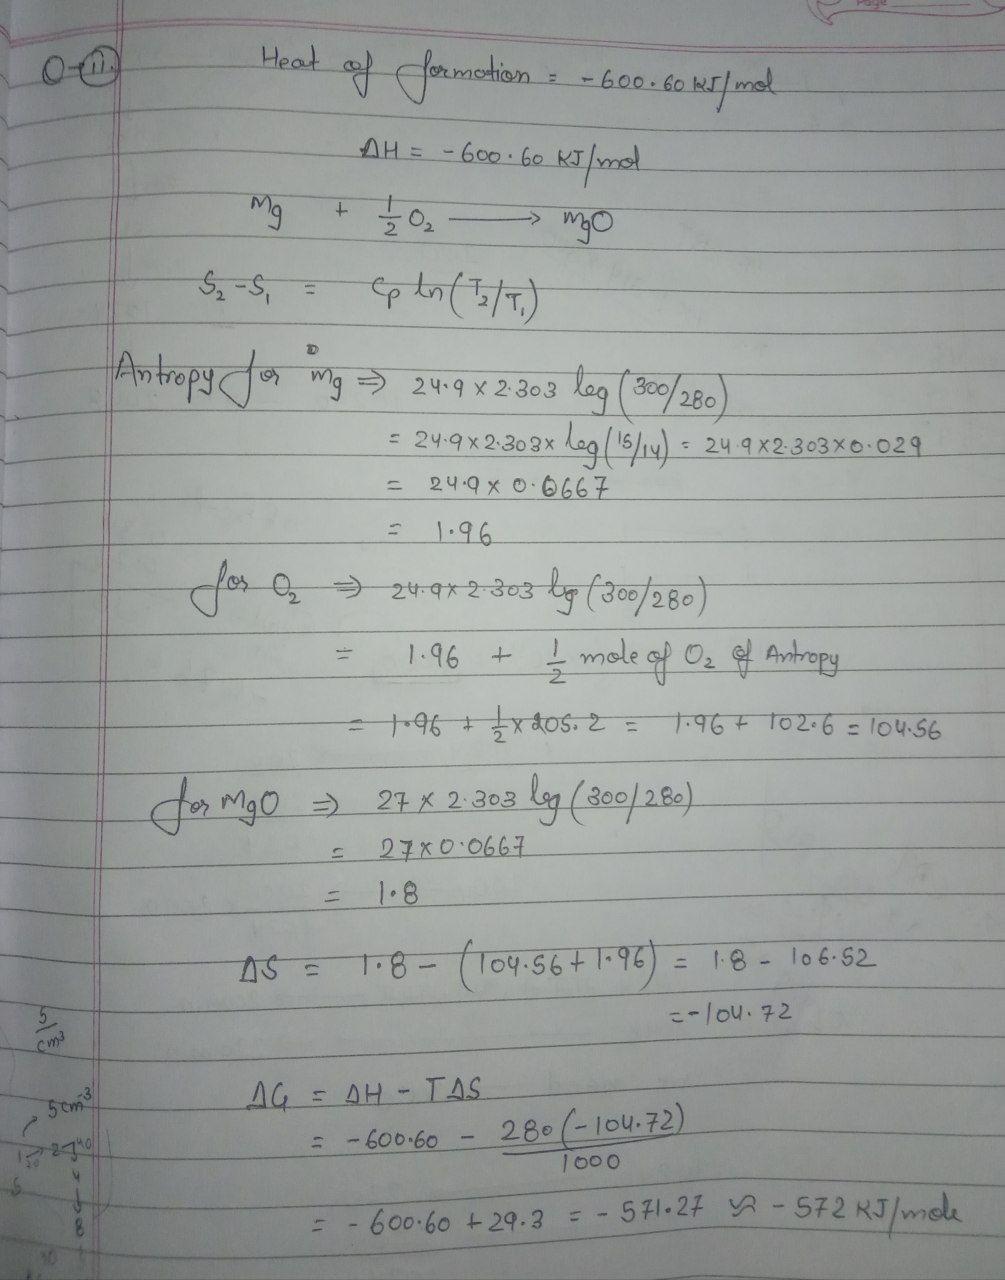 Page
Q-11.
Heat of formation = -600.60 KJ/mol
ΔH = -600.60 KJ/mol
Mg + 1/2 O₂ ⟶ MgO
S₂-S₁ = Cp ln(T₂/T₁)
Antropy for Mg ⇒ 24.9 x 2.303 log (300/280)
= 24.9 x 2.303 x log (15/14) = 24.9 x 2.303 x 0.029
= 24.9 x 0.0667
= 1.96
for O₂ ⇒ 24.9 x 2.303 log (300/280)
= 1.96 + 1/2 mole of O₂ of Antropy
= 1.96 + 1/2 x 205.2 = 1.96 + 102.6 = 104.56
for MgO ⇒ 27 x 2.303 log (300/280)
= 27 x 0.0667
= 1.8
ΔS = 1.8 - (104.56 + 1.96) = 1.8 - 106.52
= -104.72
5/cm³
ΔG = ΔH - TΔS
5 cm⁻³
= -600.60 - 280(-104.72)/1000
= -600.60 + 29.3 = -571.27 ≈ -572 KJ/mole
8